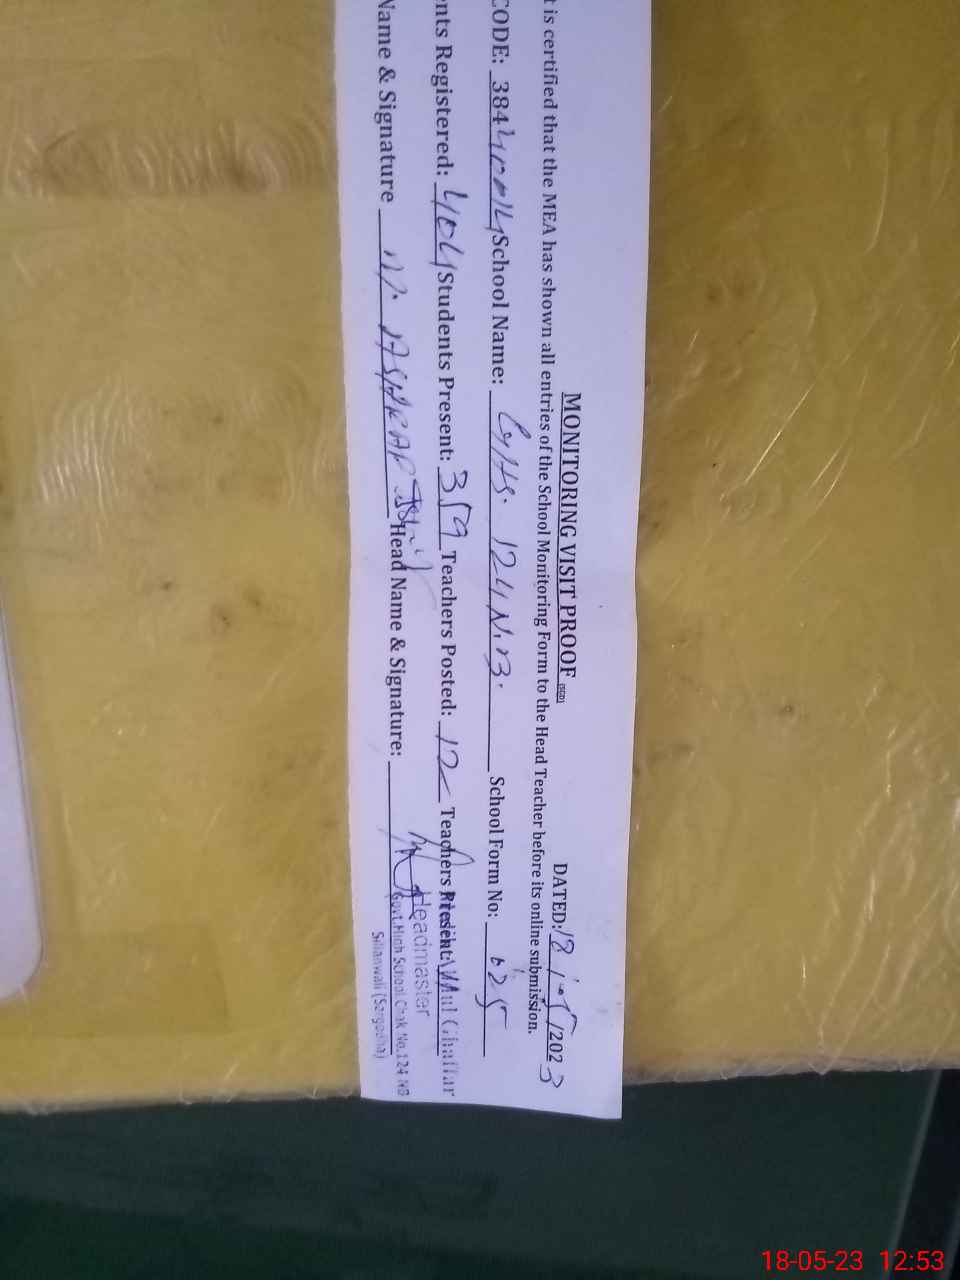 MONITORING VISIT PROOF (SED) DATED: 18/05/2023
t is certified that the MEA has shown all entries of the School Monitoring Form to the Head Teacher before its online submission.
CODE: 38440014 School Name: GHS. 124 N.B. School Form No: 625
ents Registered: 404 Students Present: 359 Teachers Posted: 12 Teachers Present:
Name & Signature M. ASHRAF Head Name & Signature:
Ghaffar
Headmaster
Govt. High School Chak No. 124 NB
Sillanwali (Sargodha)
18-05-23 12:53